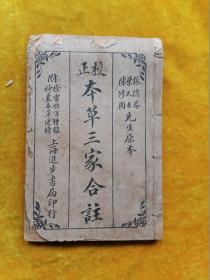 校正
張隱菴
葉天士
陳修園
先生原本
本草三家合註
附
徐靈胎百種錄
上海進步書局印行